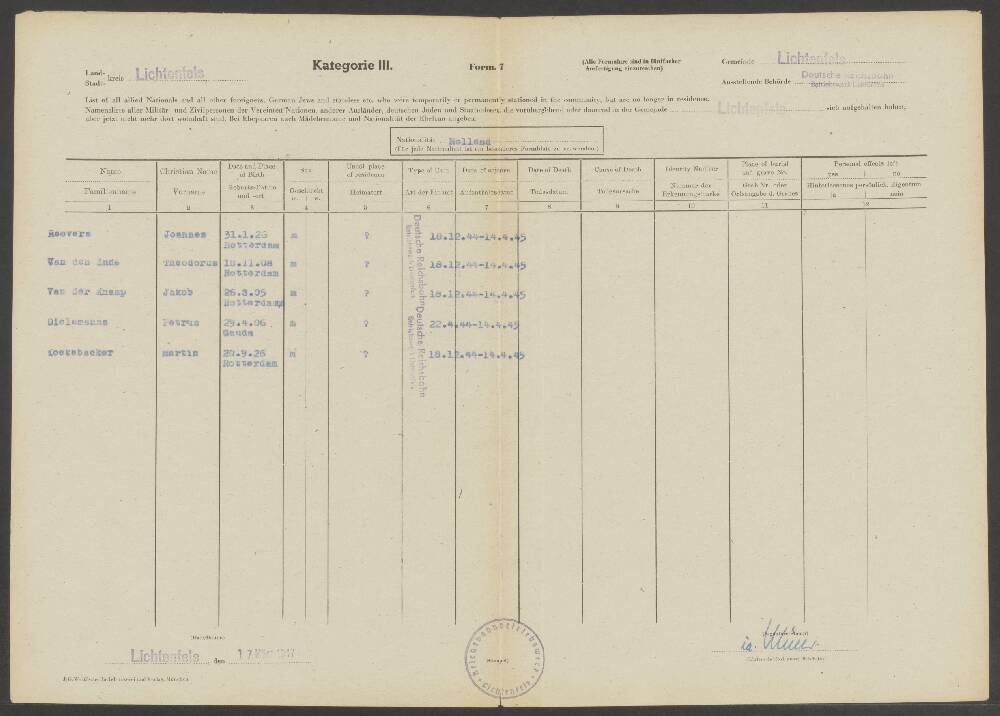 Land-
Stadt-
kreis Lichtenfels
Kategorie III.
Form. 7
(Alle Formulare sind in fünffacher
Ausfertigung einzureichen)
Gemeinde Lichtenfels
Ausstellende Behörde Deutsche Reichsbahn
Betriebswerk Lichtenfels
List of all allied Nationals and all other foreigners, German Jews and stateless etc. who were temporarily or permanently stationed in the community, but are no longer in residence.
Namensliste aller Militär- und Zivilpersonen der Vereinten Nationen, anderer Ausländer, deutschen Juden und Staatenlosen, die vorübergehend oder dauernd in der Gemeinde Lichtenfels sich aufgehalten haben,
aber jetzt nicht mehr dort wohnhaft sind. Bei Ehepaaren auch Mädchenname und Nationalität der Ehefrau angeben.
Nationalität: Holland
(Für jede Nationalität ist ein besonderes Formblatt zu verwenden)
Name
Familienname
1
Christian Name
Vorname
2
Date and Place
of Birth
Geburts-Datum
und -ort
3
Sex
Geschlecht
m. w.
4
Usual place
of residence
Heimatort
5
Type of Unit
Art der Einheit
6
Date of sojourn
Aufenthaltsdatum
7
Date of Death
Todesdatum
8
Cause of Death
Todesursache
9
Identity Number
Nummer der
Erkennungsmarke
10
Place of burial
and grave No.
Grab Nr. oder
Ortsangabe d. Grabes
11
Personal effects left
yes no
Hinterlassenes persönlich. Eigentum
ja nein
12
Roovers Joannes 31.1.26 m ? 18.12.44-14.4.45
Rotterdam
Van den Ende Theodorus 18.11.08 m ? 18.12.44-14.4.45
Rotterdam
Van der Knaap Jakob 26.8.05 m ? 18.12.44-14.4.45
Rotterdam
Dielemanns Petrus 29.4.06 m ? 22.4.44-14.4.45
Gouda
Koekebacker Martin 20.9.26 m ? 18.12.44-14.4.45
Rotterdam
Deutsche Reichsbahn
Deutsche Reichsbahn
Lichtenfels, den 17. März 1947
(Stempel)
i.a.